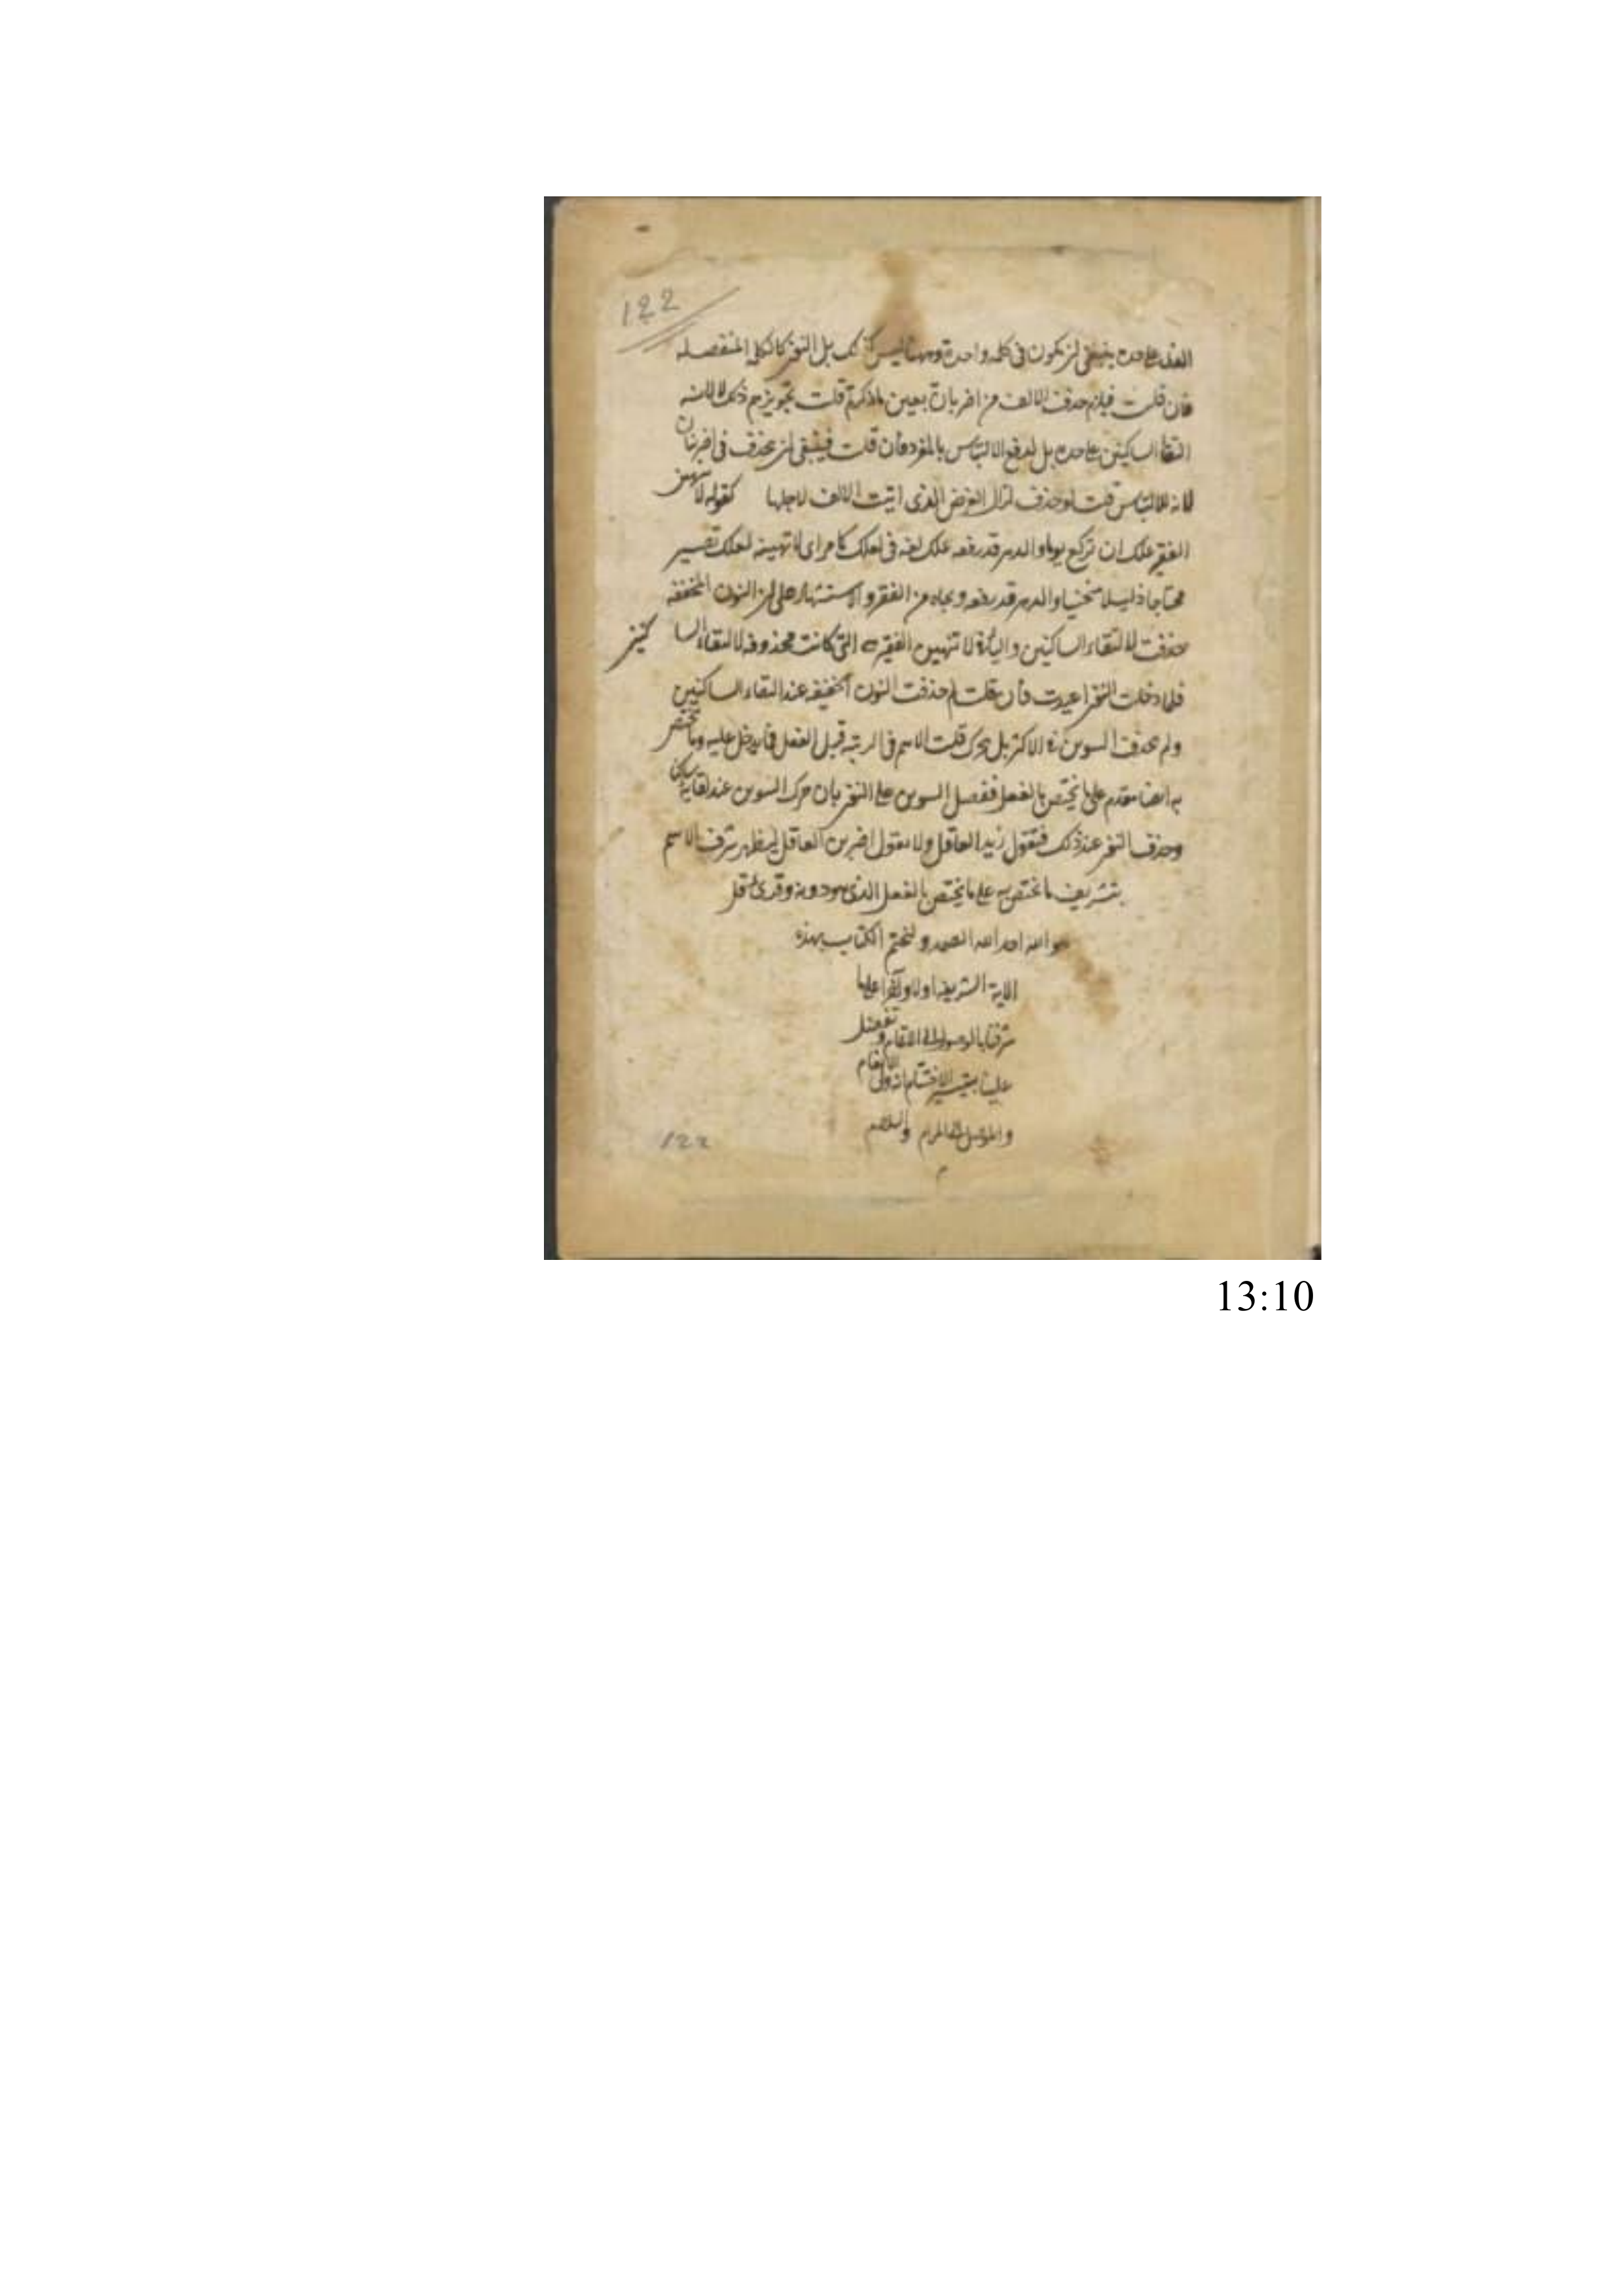 122
على حده ينبغى ان يكون فى كلمة واحدة وههنا ليس كذلك بل النون كالكلمة المنفصلة
فان قلت فيلزم حذف الالف من اضربان بعين ما ذكرتم قلت تجويزهم ذلك لا لانه
التقاء الساكنين على حده بل لدفع الالتباس بالمفرد فان قلت فينبغى ان يحذف فى اضربنان
لانه لا التباس قلت لو حذف لزال الغرض الذى اتيت الالف لاجلها كقوله لا تهين
الفقير علك ان تركع يوما والدهر قد رفعه علك لغة فى لعلك كما مر اى لا تهينه لعلك تصير
محتاجا ذليلا منحنيا والدهر قد رفعه من الفقر والاستشهاد على ان النون المخففة
حذفت لالتقاء الساكنين والياء فى لا تهين الفقير التى كانت محذوفة لالتقاء الساكنين
فلما دخلت النون اعيدت فان قلت لم حذفت النون الخفيفة عند التقاء الساكنين
ولم يحذف التنوين فى الاكثر بل يحرك قلت الاسم فى الرتبة قبل الفعل فما يدخل عليه وما يختص
به ايضا مقدم على ما يختص بالفعل ففضل التنوين على النون بان حرك التنوين عند لقاية ساكن
وحذف النون عند ذلك فتقول زيد العاقل ولا تقول اضربن العاقل ليظهر شرف الاسم
بتشريف ما يختص به على ما يختص بالفعل الذى هو دونه وقد قرئ قل
هو الله احد الله الصمد ولنختم الكتاب بهذه
الاية الشريفة اولا وآخرا
شرفنا بالوصول الى
علينا بتيسير الاختتام انه ولى الانعام
المرام والسلام
م
122
13:10